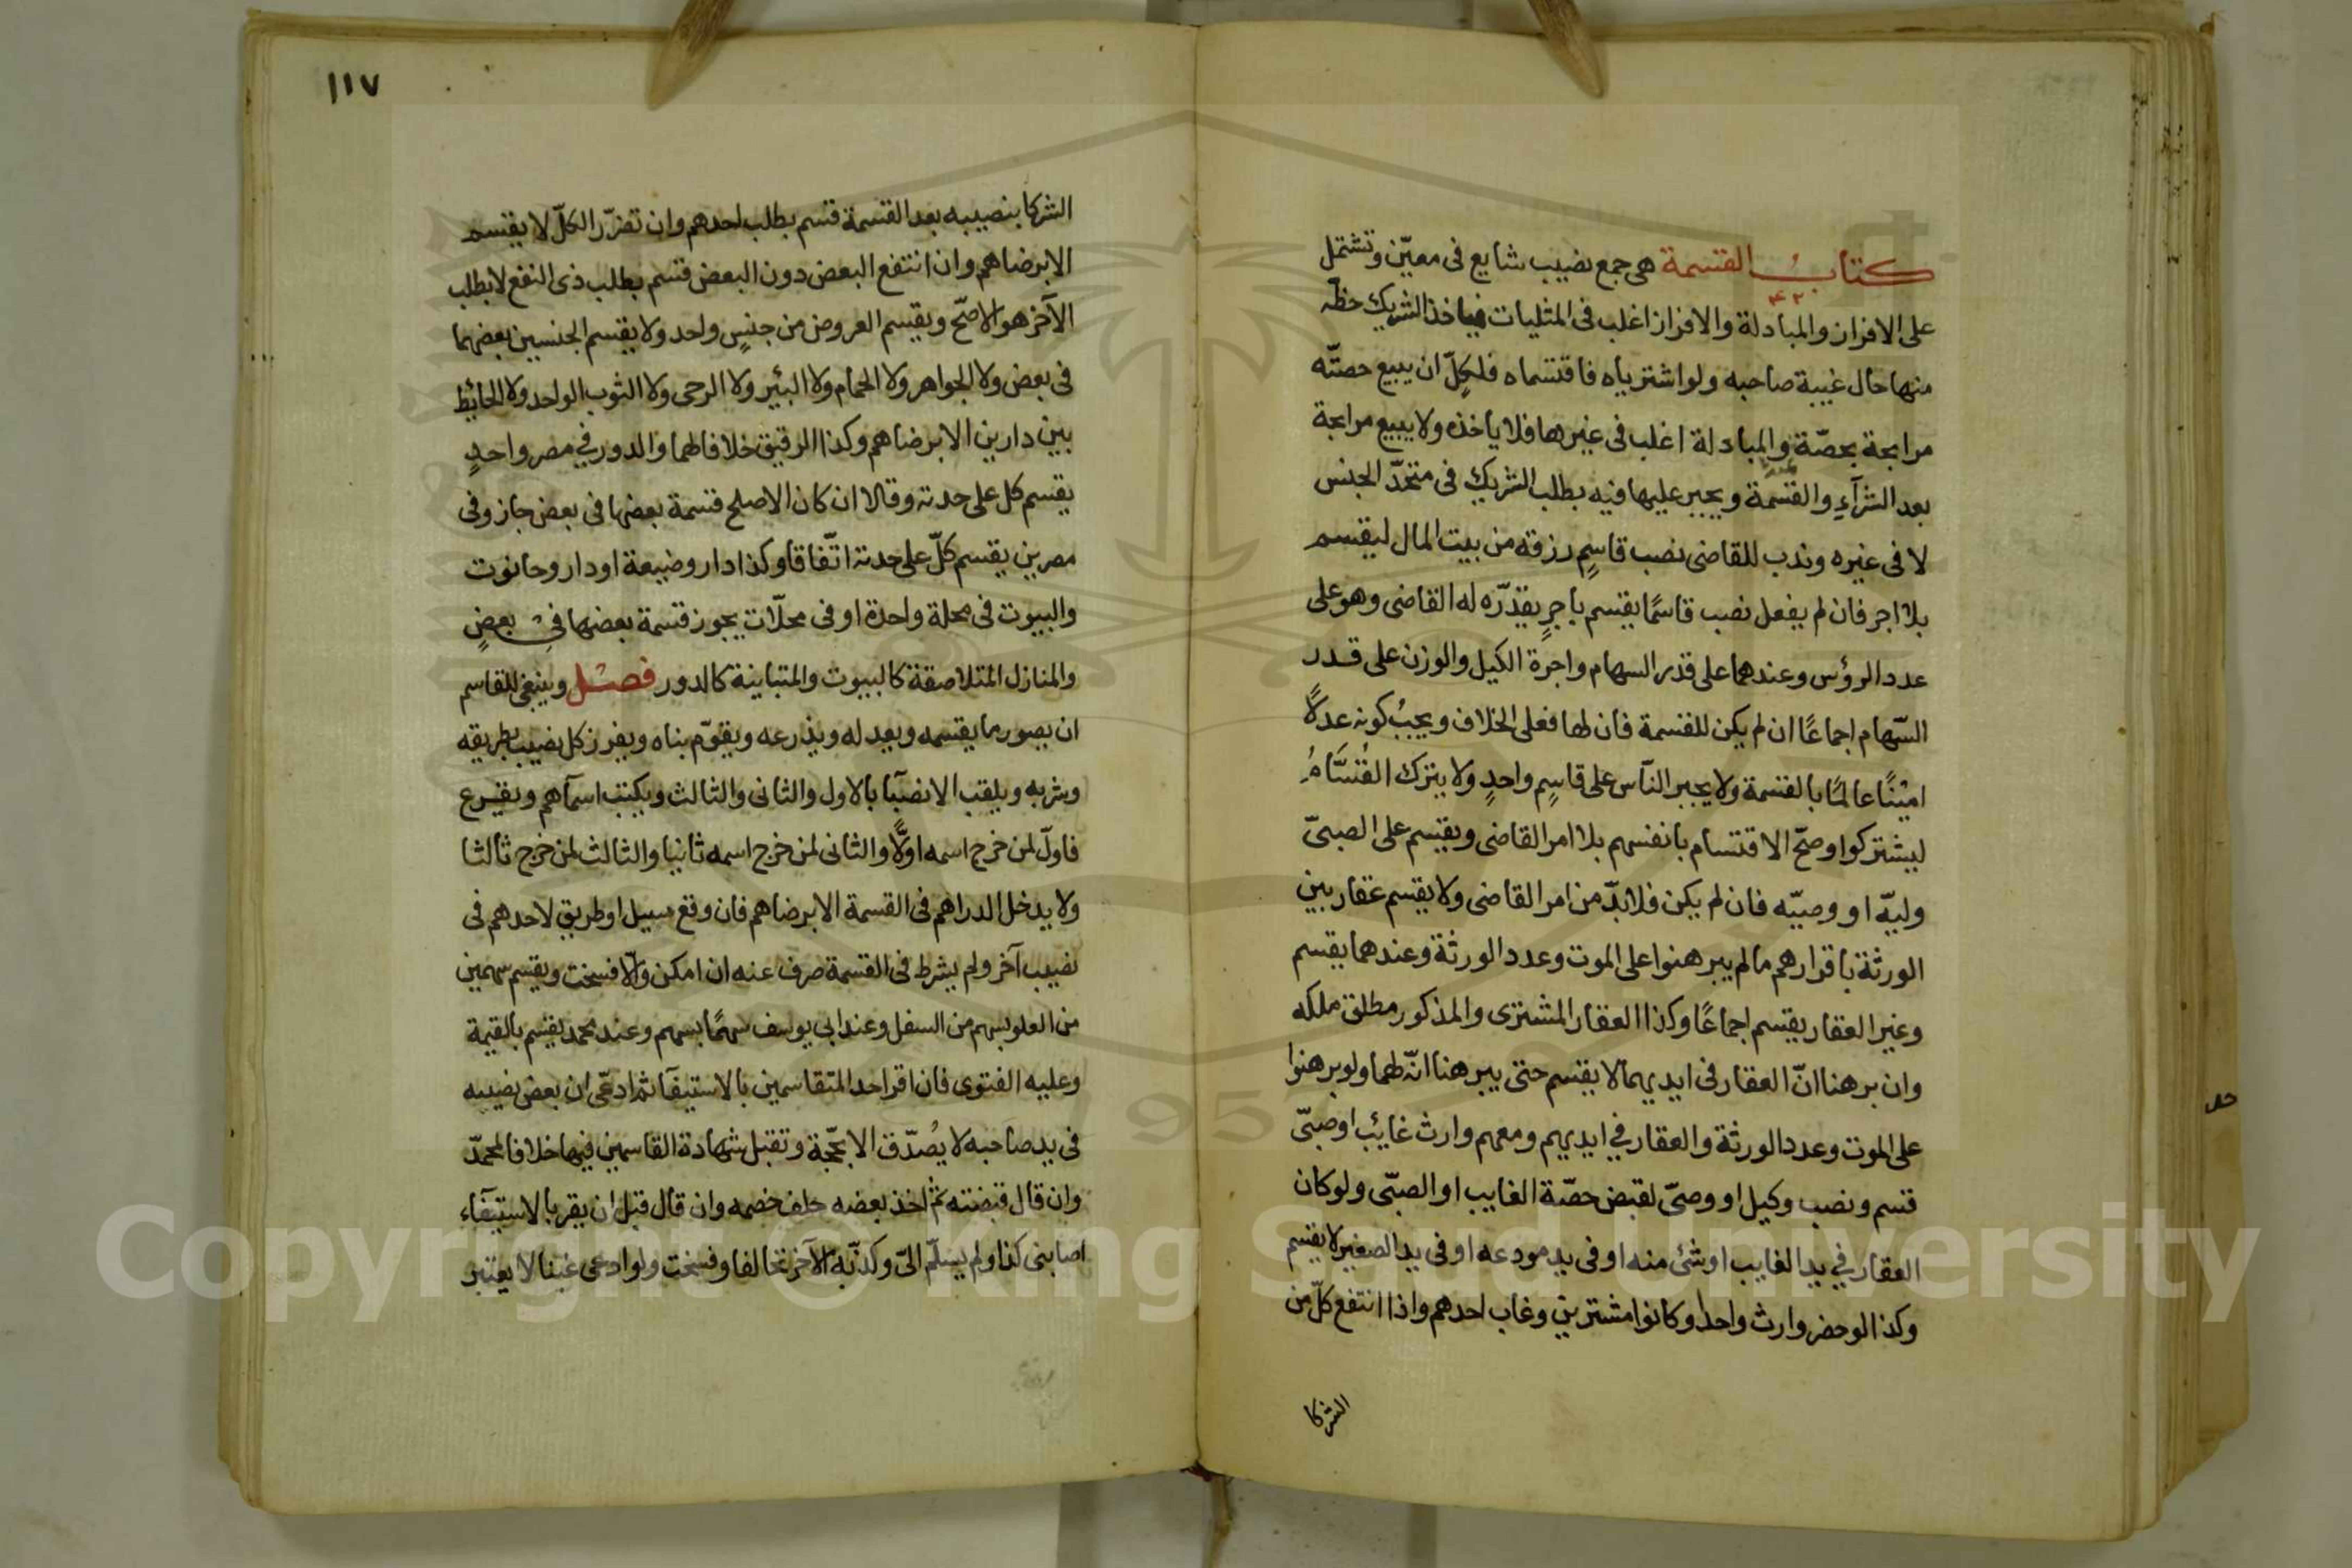 كتاب القسمة هي جمع نصيب شايع في معيّن وتشتمل
على الافراز والمبادلة والافراز اغلب في المثليات فياخذ الشريك حظّه
منها حال غيبة صاحبه ولو اشترياه فاقتسماه فلكلّ ان يبيع حصّته
مرابحة بحصّة والمبادلة اغلب في غيرها فلا ياخذه ولا يبيع مرابحة
بعد الشرآء والقسمة ويجبر عليها فيه بطلب الشريك في متحدّ الجنس
لا في غيره وندب للقاضى نصب قاسمٍ رزقه من بيت المال ليقسم
بلا اجر فان لم يفعل نصب قاسمًا يقسم باجرٍ يقدّره له القاضى وهو على
عدد الرؤس وعندهما على قدر السهام واجرة الكيل والوزن على قدر
السّهام اجماعًا ان لم يكن للقسمة فان لها فعلى الخلاف ويجبُ كونه عدلاً
امينًا عالمًا بالقسمة ولا يجبر النّاس على قاسمٍ واحدٍ ولا يترك القُسَّامُ
ليشتركوا وصحّ الاقتسام بانفسهم بلا امر القاضى ويقسم على الصبىّ
وليّه او وصيّه فان لم يكن فلا بدّ من امر القاضى ولا يقسم عقار بين
الورثة باقرارهم ما لم يبرهنوا على الموت وعدد الورثة وعندهما يقسم
وغير العقار يقسم اجماعًا وكذا العقار المشترى والمذكور مطلق ملكه
وان برهنا انّ العقار في ايديهما لا يقسم حتى يبرهنا انّه لهما ولو برهنوا
على الموت وعدد الورثة والعقار في ايديهم ومعهم وارث غائب او صبىّ
قسم ونصب وكيل او وصىّ لقبض حصّة الغايب او الصبىّ ولو كان
العقار في يد الغايب او شئ منه او في يد مودعه او في يد الصغير لا يقسم
وكذا لو حضر وارث واحد او كانوا مشترين وغاب احدهم واذا انتفع كلّ من
الشركا
١١٧
الشركا بنصيبه بعد القسمة قسم بطلب احدهم وان تضرّر الكلّ لا يقسم
الا برضاهم وان انتفع البعض دون البعض قسم بطلب ذى النفع لا بطلب
الآخر هو الاصحّ ويقسم العروض من جنسٍ واحد ولا يقسم الجنسين بعضهما
في بعض ولا الجواهر ولا الحمام ولا البئير ولا الرحى ولا الثوب الواحد ولا الحائط
بين دارين الا برضاهم وكذا الرقيق خلافا لهما والدور في مصر واحدٍ
يقسم كل على حدته وقالا ان كان الاصلح قسمة بعضها في بعض جاز وفي
مصرين يقسم كلّ على حدته اتّفاقا وكذا دار وضيعة او دار وحانوت
والبيوت في محلة واحدة او في محلّات يجوز قسمة بعضها في بعضٍ
والمنازل المتلاصقة كالبيوت والمتباينة كالدور فصل وينبغى للقاسم
ان يصور ما يقسمه ويعدله ويذرعه ويقوّم بناه ويفرز كل نصيب بطريقه
وشربه ويلقب الانصبآ بالاول والثانى والثالث ويكتب اسمآهم ويقرع
فاولّ لمن خرج اسمه اولًّا والثانى لمن خرج اسمه ثانيا والثالث لمن خرج ثالثا
ولا يدخل الدراهم في القسمة الا برضاهم فان وقع مسيل او طريق لاحدهم في
نصيب آخر ولم يشرط في القسمة صرف عنه ان امكن والّا فسخت ويقسم سهمين
من العلو بسهم من السفل وعند ابي يوسف سهمًا بسهم وعند محمد يقسم بالقيمة
وعليه الفتوى فان اقر احد المتقاسمين بالاستيفآ ثم ادعّى ان بعض نصيبه
في يد صاحبه لا يُصدّق الا بحّجة وتقبل شهادة القاسمين فيها خلافا لمحمدّ
وان قال قبضته ثم اخذ بعضه حلف خصمه وان قال قبل ان يقر بالاستيفآء
اصابنى كذا ولم يسلّم الىّ وكذّبه الآخر تحالفا وفسخت ولو ادعى غبنا لا يعتبر
Copyright © King Saud University